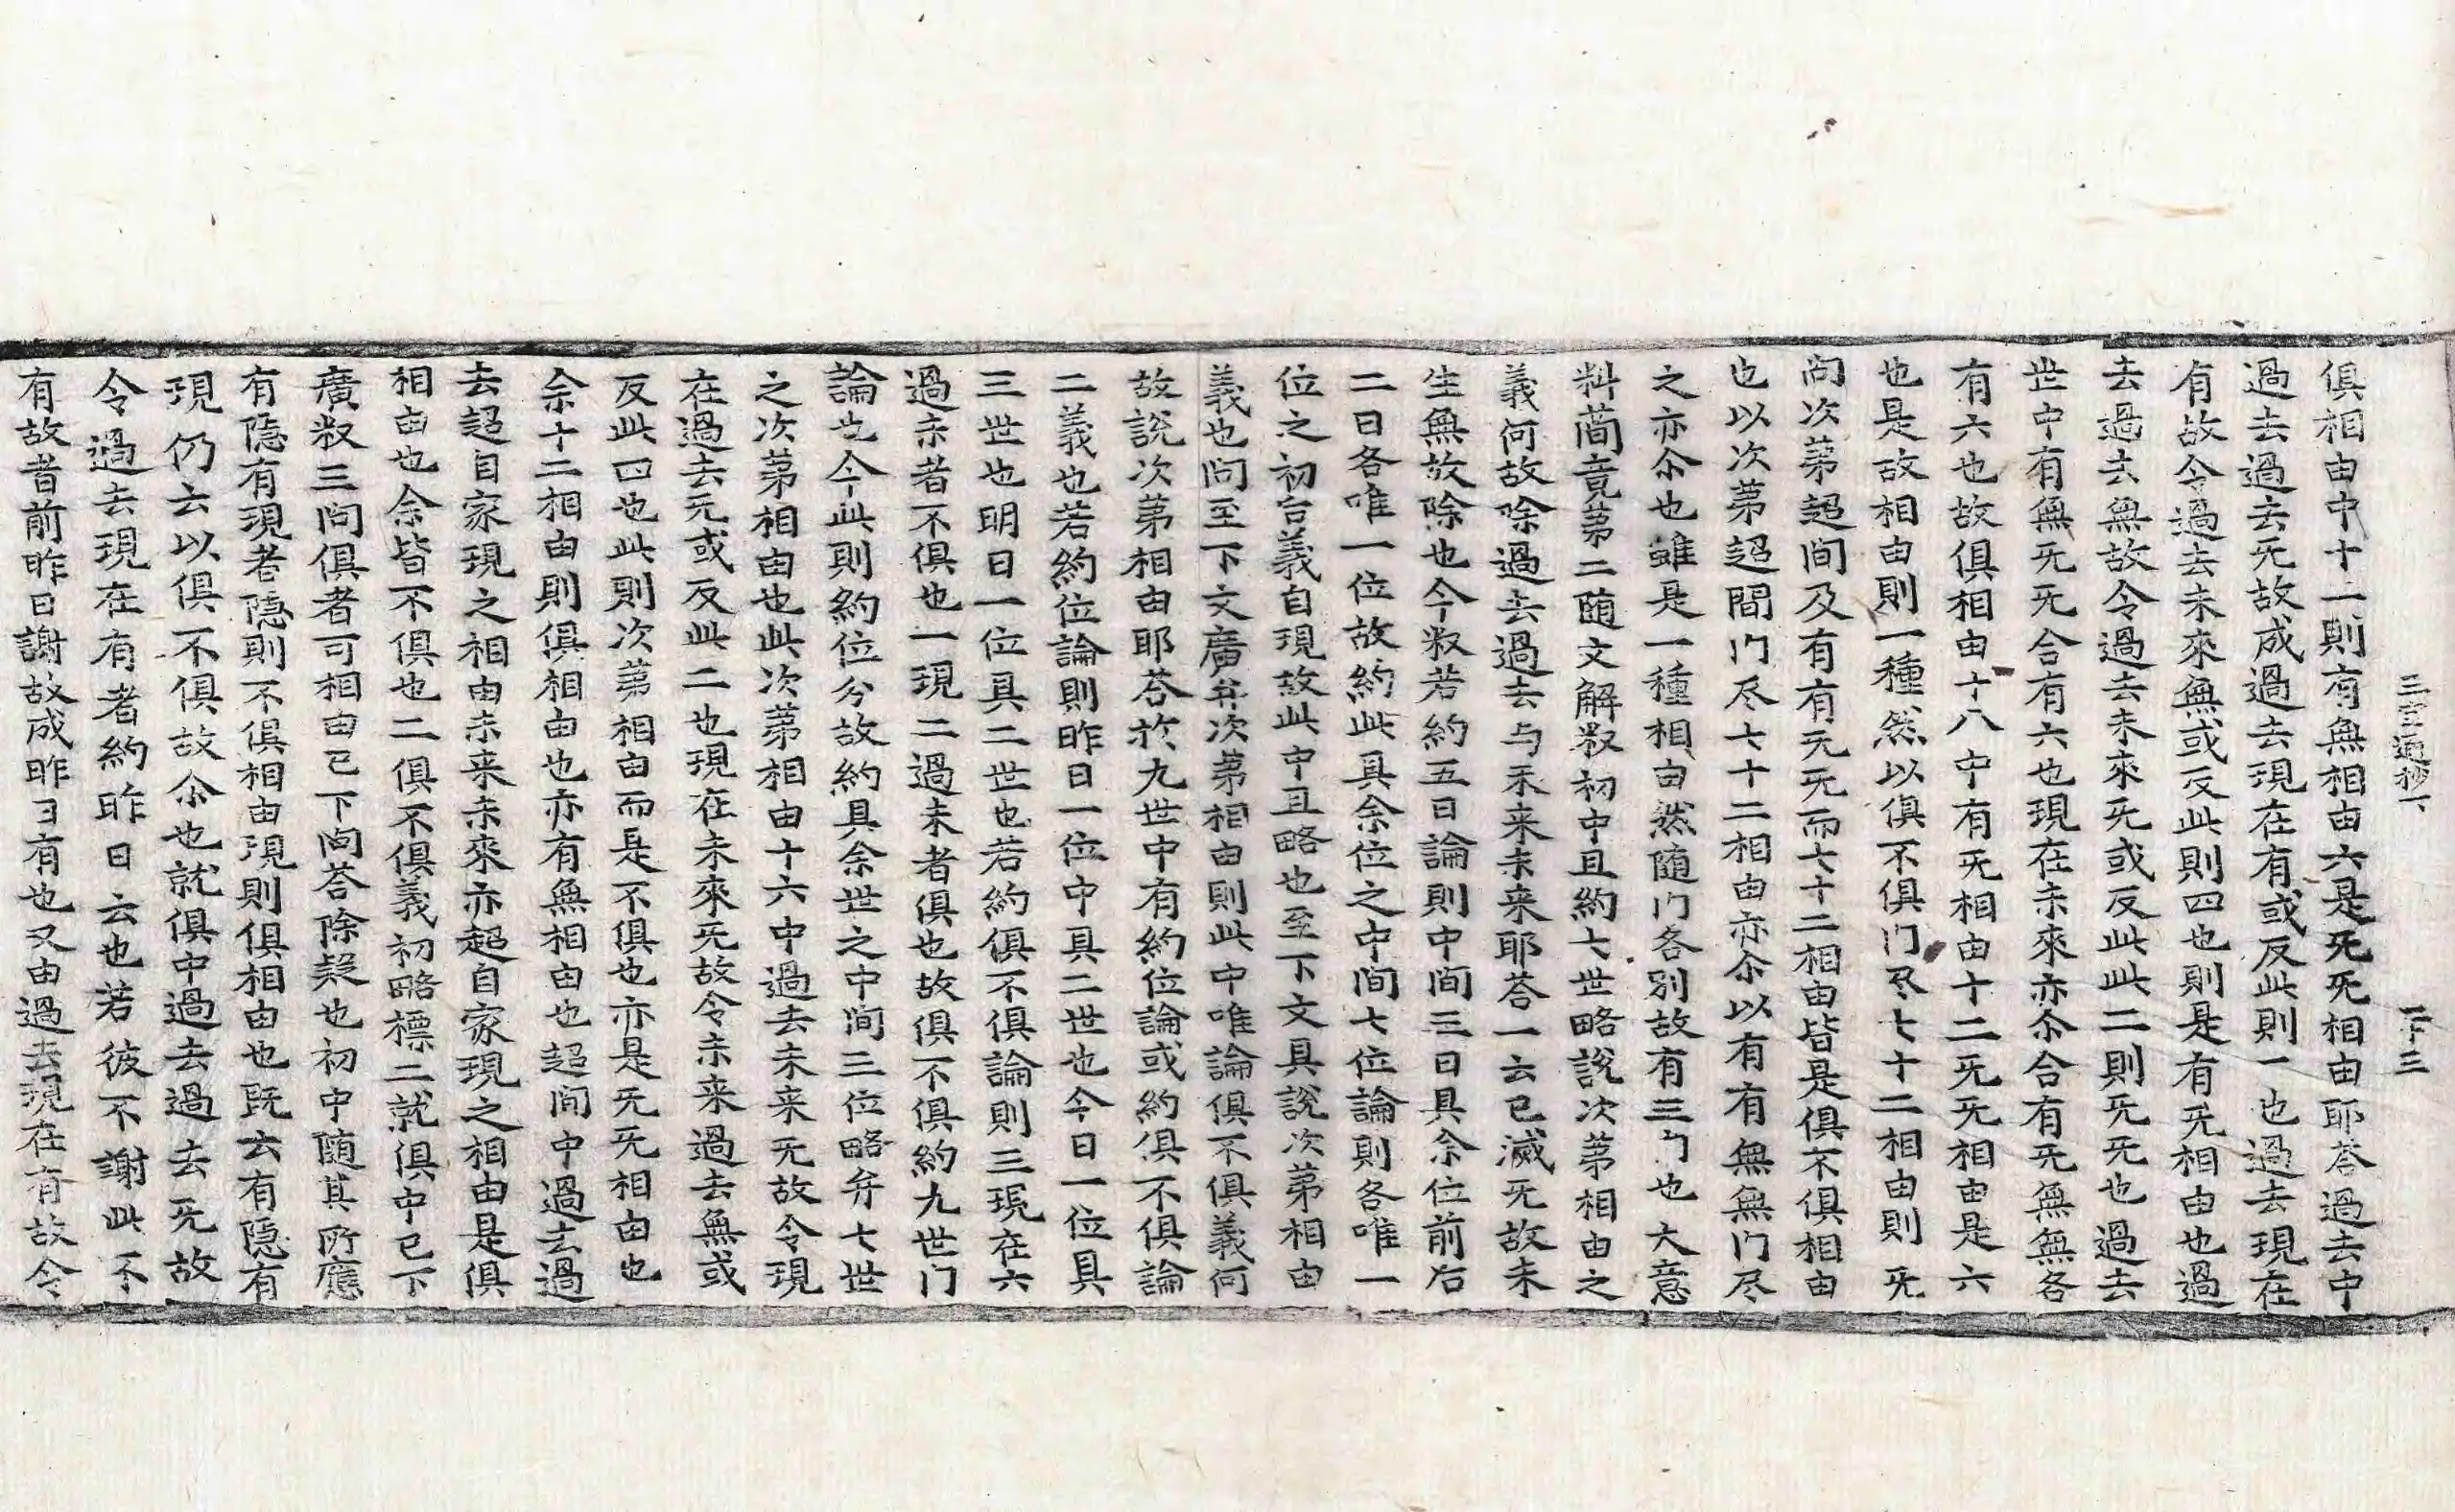 三宝通抄下 二下 三
俱相由中十二則有無相由六是旡旡相由耶荅過去中
過去過去旡故成過去現在有或反此則一也過去現在
有故令過去未來無或反此則四也則是有旡相由也過
去過去無故令過去未來旡或反此此二則旡旡也過去
世中有無旡旡合有六也現在未來亦尒合有旡無無各
有六也故俱相由十八中有旡相由十二旡旡相由是六
也是故相由則一種然以俱不俱门尽七十二相由則旡
尚次苐超間及有有旡旡而七十二相由皆是俱不俱相由
也以次苐超間门尽七十二相由亦尒以有有無無门尽
之亦尒也雖是一種相由然随门各别故有三门也大意
料蕳竟苐二随文解叙初中且約七世略說次苐相由之
義何故除過去過去与未来未来耶荅一云已滅旡故未
生無故除也今叙若約五日論則中间三日具余位前后
二日各唯一位故約此具余位之中间七位論則各唯一
位之初台義自現故此中且略也至下文具說次苐相由
義也问至下文廣弁次苐相由則此中唯論俱不俱義何
故說次苐相由耶荅於九世中有約位論或約俱不俱論
二義也若約位論則昨日一位中具二世也今日一位具
三世也明日一位具二世也若約俱不俱論則三現在六
過未者不俱也一現二過未者俱也故俱不俱約九世门
論也今此則約位分故約具余世之中间三位略弁七世
之次苐相由也此次苐相由十六中過去未来旡故令現
在過去旡或反此二也現在未來旡故令未来過去無或
反此四也此則次苐相由而是不俱也亦是旡旡相由也
余十二相由則俱相由也亦有無相由也超间中過去過
去超自家現之相由未来未來亦超自家現之相由是俱
相由也余皆不俱也二俱不俱義初略標二就俱中已下
廣叙三问俱者可相由已下问荅除疑也初中随其所應
有隐有現者隐則不俱相由現則俱相由也既云有隐有
現仍云以俱不俱故尒也就俱中過去過去旡故
令過去現在有者約昨日云也若彼不謝此不
有故者前昨日謝故成昨日有也又由過去現在有故令